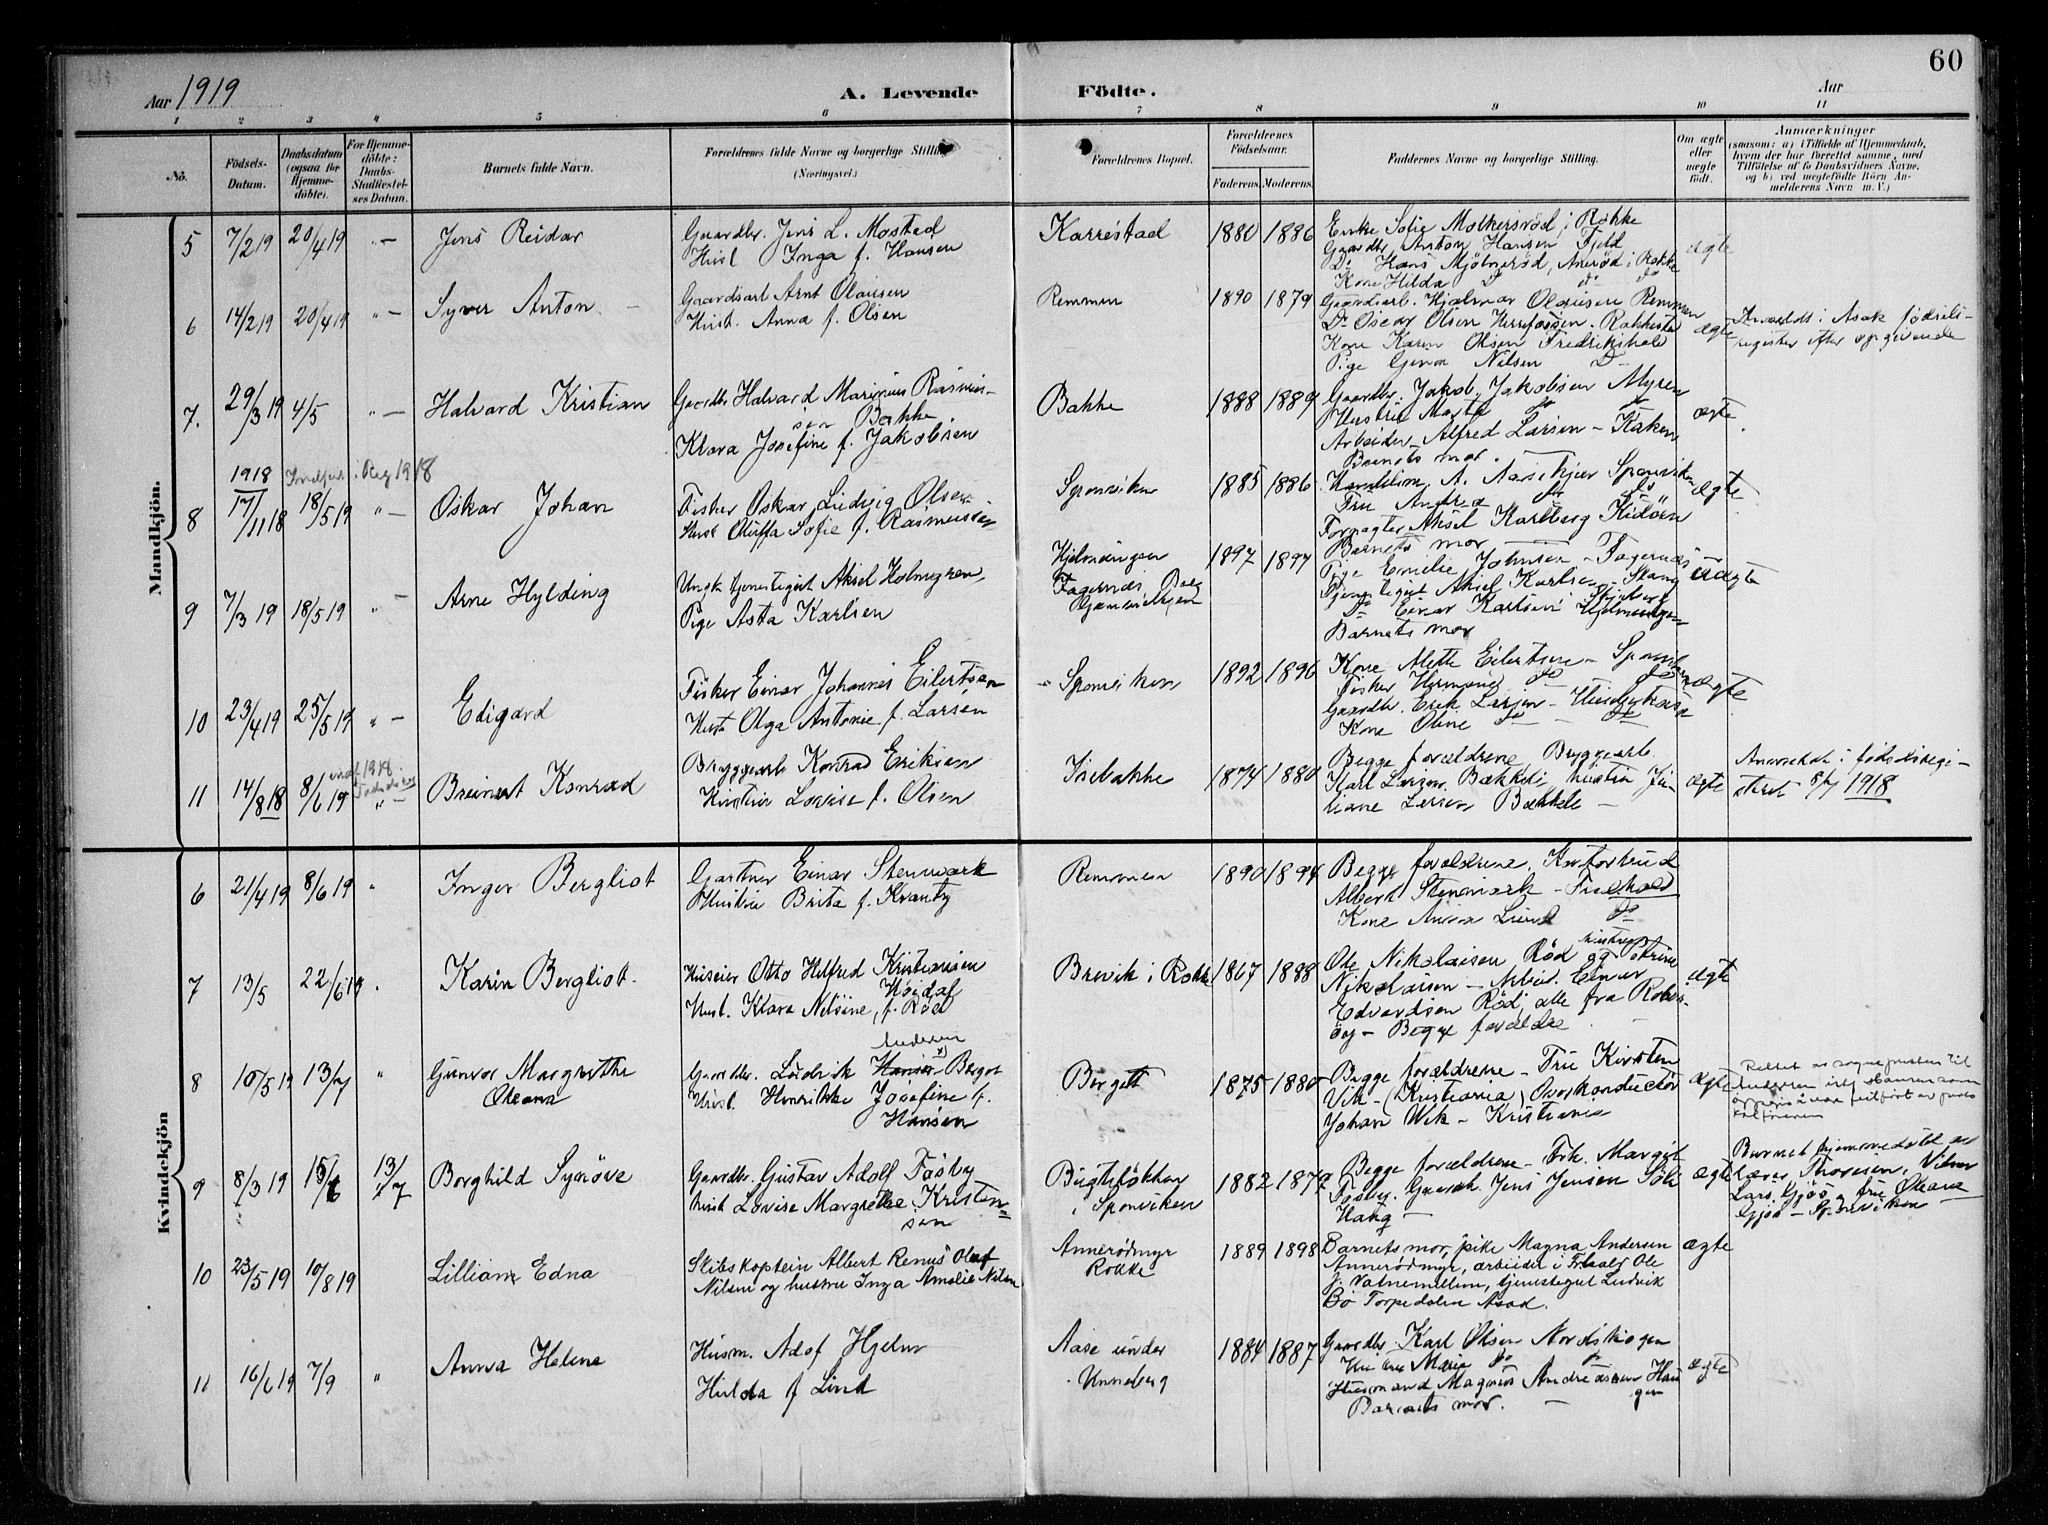 60
Aar 1919
A. Levende
Födte.
Aar
1 2 3 4 5 6 7 8 9 10 11
No.
Födsels-Datum.
Daabsdatum (ogsaa for Hjemme-döbte).
For Hjemme-döbte: Daabs-Stadfæstel-ses Datum.
Barnets fulde Navn.
Forældrenes fulde Navne og borgerlige Stilling (Næringsvei.)
Forældrenes Bopæl.
Forældrenes Födselsaar.
Faderens. Moderens.
Faddernes Navne og borgerlige Stilling.
Om ægte eller uægte födt.
Anmærkninger
(saasom: a) i Tilfælde af Hjemmedaab,
hvem der har forrettet samme, med
Tilföielse af to Daabsvidners Navne,
og b) ved uægtefödte Börn An-
melderens Navn m. V.)
Mandkjön.
5 7/2 19 20/4 19 " — Jens Reidar
Gaardbr. Jens L. Mostad
Hust Inga f. Hansen
Karrestad 1880 1886
Enke Sofie Molkersrød, i Rokke
Gaardbr Anton Hansen Fjeld
Do Hans Mjölnerød, i Rokke
Kone Hilda do do
ægte
6 14/2 19 20/4 19 " — Syver Anton
Gaardsarb Arnt Olausen
Hust. Anna f. Olsen
Remmen 1890 1879
Gaardsarb. Hjalmar Olausen Remmen
Do Oscar Olsen
Kone Karen Olsen Fredrikshald
Pige Nilsen Do
ægte
Anmeldt i Asak födsels-
register efter opgivende
7. 29/3 19 4/5 " — Halvard Kristian
Gaardbr Halvard Marinius Rasmus-
sen Bakke.
Klara Josefine f. Jakobsen
Bakke 1888 1889
Gaardbr. Jakob Jakobsen Myren
Hustru Marta do do
Arbeider Alfred Larsen —
Barnets mor.
ægte
8 1918 17/11 18 18/5 19 " — Oskar Johan
i Reg 1918
Fisker Oskar Ludvig Olsen
Hust Oluffa Sofie f. Rasmussen
Sponviken 1885 1886
A. Aarsskjær Sponviken
Fru Andrea do do
Forpagter Aksel Karlberg Kidörn
Barnets mor
ægte
9 7/3 19 18/5 19 " — Arne Hylding
Ungk tjenestegut Aksel Holmgren,
Pige Asta Karlsen
Fagernæs, 1897 1897
Pige Emelie Johnsen — Fagernæs
Tjenestegut Aksel Karlsen
Do Einar Karlsen
Barnets mor
uægte
10 23/4 19 25/5 19 " — Edigard
Fisker Einar Johannes Eilertsen
Hust Olga Antonie f. Larsen
Sponviken 1892 1896
Kone Alette Eilertsen — Sponviken
Fisker Hermand do do
Gaardbr. Erik Larsen —
Kone Oline do do
ægte
11 14/8 18 8/6 19 " — Breinert Konrad
indf 1918
Bryggearb Konrad Eriksen
Hustru Lovise f. Olsen
Isebakke 1874 1880
Begge forældrene Bryggearb.
Karl Larsen Bakkeli, hustru Ju-
liane Larsen Bakkeli —
ægte
Anmeldt i fødselsregi-
stret 8/7 1918
Kvindekjön
6 21/4 19 8/6 19 " Inger Bergliot
Gartner Einar Stenmark
Hustru Brita f. Kvanty
Remmen 1890 1894
Begge forældrene,
Albert Stenmark — Fr.hald
Kone Anna Lund do
7 13/5 22/6 19 " Karin Bergliot.
Huseier Otto Hilfred Kristiansen
Hust. Klara Nilsine, f. Röd
Brevik i Rokke 1867 1888
Ole Nikolaisen Röd og hustru Petrine
Nikolaisen — Arbeid. Einar
Edvardsen Röd, alle fra
Begge forældre
ægte
8 10/5 19 13/7 " Gunvor Margrethe
Oleana
Gaardbr. Ludvik Hansen Andersen x) Berget
Hust. Henrikke Josefine f.
Hansen
Berget 1875 1880
Begge forældrene — Fru Kirsten
Vik — (Kristiania) Overkonduktör
Johan Wik — Kristiania
ægte
Rettet av sogneprästen til
Andersen istf Hansen som
9 8/3 19 15/6 13/7 Borghild Synöve
Gaardbr. Gustav Adolf Fosby
Hust Lovise Margrethe Kristen-
sen
Bugtelökken
i Sponviken
1882 1879
Begge forældrene — Frk. Margit
Fosby. Gaardb. Jens Jensen
Haug —
ægte
Barnet hjemmedöbt av
Lærer Thoresen. Vidner
Lars Gjös og fru Oleava
Gjös — Sponviken
10 23/5 19 10/8 19 Lilliann Edna
Skibskaptein Albert Renus Olaf
Nilsen og hustru Inga Amalie Nilsen
Annerödmyr
Rokke
1889 1898
Barnets mor, pike Magna Andersen
Annerödmyr, arbeider i Fr.hald Ole
J. Vatnemellem, tjenestegut Ludvik
Bö Torpedalen Asak.
ægte
11 16/6 19 7/9 " Anna Helene
Husm. Adof Hjelm
Hulda f Lind
Aase under
Unneberg
1884 1887
Gaardbr. Karl Olsen Nordskogen
Hustru Marie do do
Husmand Magnus Andreassen Hau-
gen
Barnets mor. —
ægte